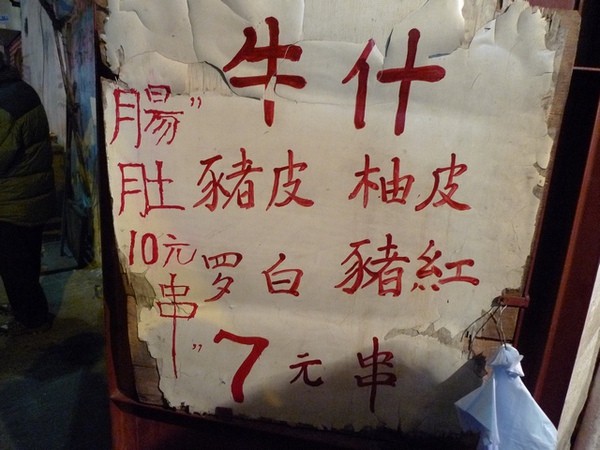 牛什
豬皮 柚皮
罗白 豬紅
7元串
"腸
肚
10元
串"